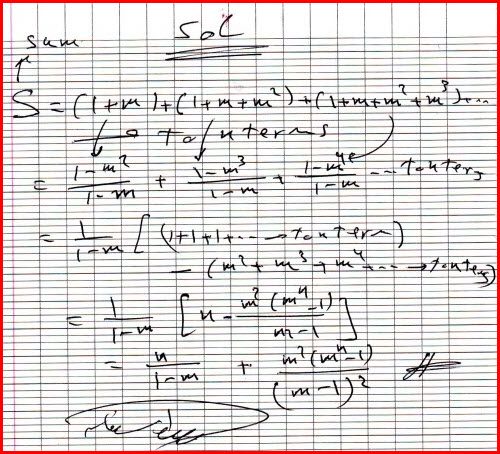 SOL
sum
S = (1+m) + (1+m+m²) + (1+m+m²+m³) + ...
→ to n terms
= (1-m²)/(1-m) + (1-m³)/(1-m) + (1-m⁴)/(1-m) --- to n terms
= 1/(1-m) [ (1+1+1+... → to n term)
- (m²+m³+m⁴+... → to n terms)
= 1/(1-m) [ n - m²(mⁿ-1)/(m-1) ]
= n/(1-m) + m²(mⁿ-1)/(m-1)²